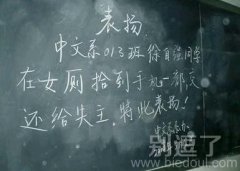 表扬
中文系013班徐自强同学
在女厕拾到手机一部交
还给失主,特此表扬!
别逗了
www.biedoul.com